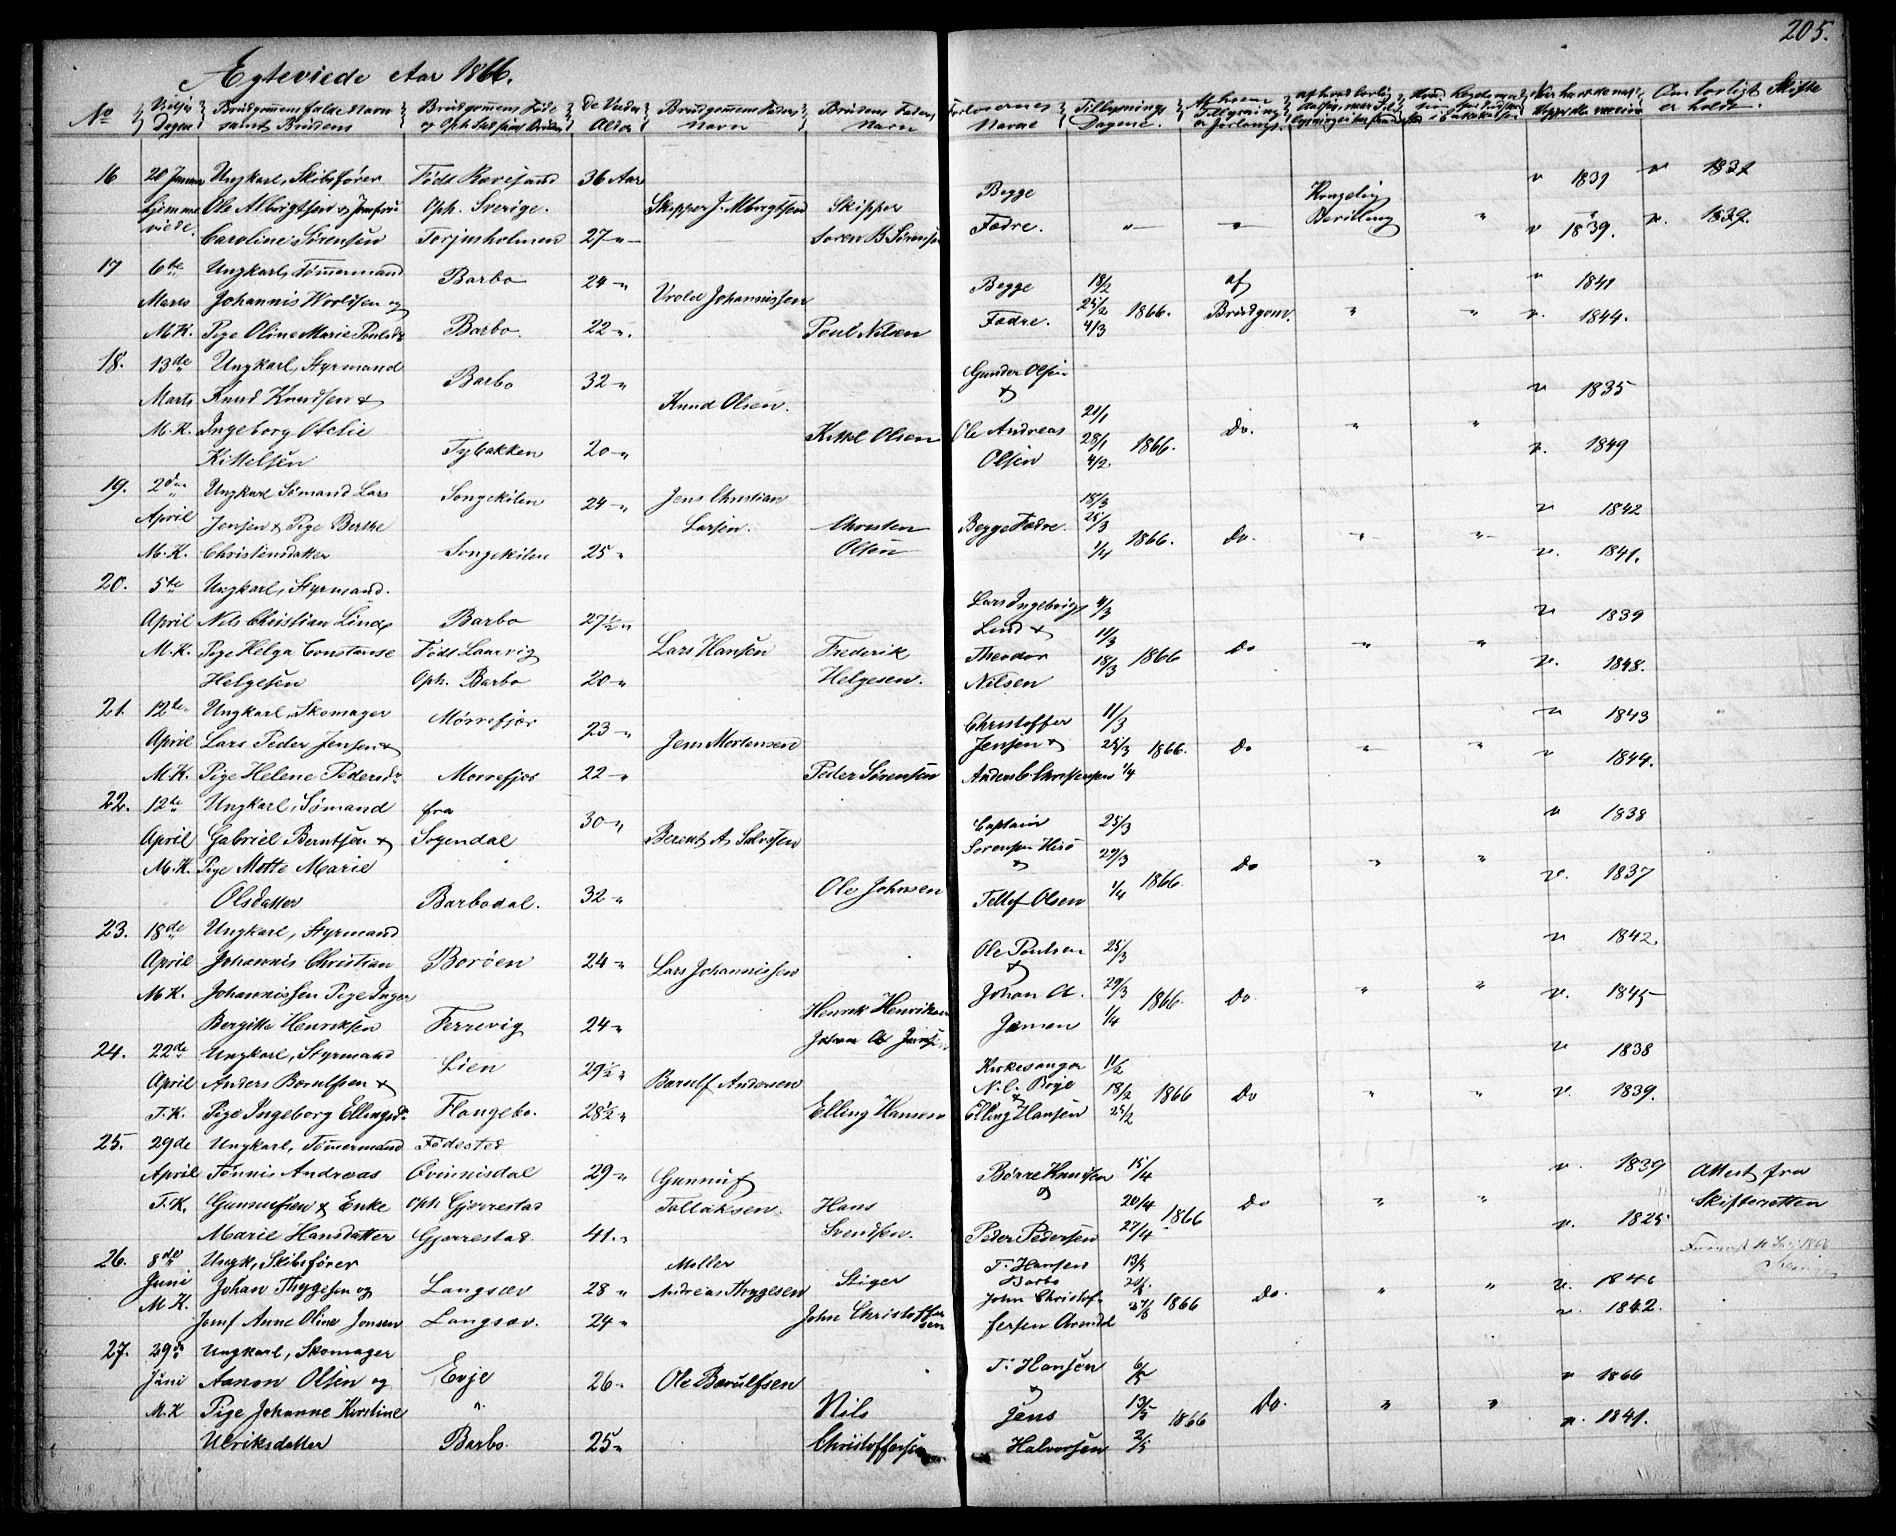 205.
Egteviede Aar 1866.
No | Vielses Dagen | Brudgomens fulde Navn samt Brudens | Brudgomens Føde og Oph. Sted samt Brudens | De Viedes Alder | Brudgomens Faders Navn | Brudens Faders Navn | Forlovernes Navne | Tillysnings Dagene | Af hvem Tillysning er forlangt | Om lovligt Skifte er holdt
16 20 Januar Ungkarl, Skibsfører Født Kovesand 36 Aar Begge Kongelig v 1839 v 1832
hjemme Ole Albregtsen & Jomfru Oph. Sverige. Skipper J. Albregtsen Skipper
viede. Caroline Sørensen Torjusholmen 27 " Søren B Sørensen Fædre. " " Bevilling " v 1839. v. 1839.
17 6te Ungkarl, Tømermand Barbo 24 " Begge 18/2 af v 1841
Marts Johannis Wroldsen og Vrold Johannissen 25/2 1866. Brudgom. " "
M.K. Pige Oline Marie Poulsdr Barbo. 22 ". Poul Nilsen Fædre. 4/3 v. 1844.
18. 13de Ungkarl, Styrmand Barbo 32 " Gunder Olsen v 1835
Marts Knud Knudsen & Knud Olsen. &
M.K. Ingeborg Otelie Kittel Olsen Ole Andreas 21/1 28/1 1866. Do. " "
Kittelsen Tybakken 20 " Olsen 4/2 v. 1849
19. 2den Ungkarl Sømand Lars Songekilen 24 " Jens Christian 18/3 v 1842
April Jensen & Pige Berthe Larsen. Christen Begge Fædre. 25/3 1866. Do. " "
M.K. Christensdatter Songekilen 25 " Olsen 1/4 v. 1841.
20. 5te Ungkarl, Styrmand. Lars Ingebrigt 4/3
April Nils Christian Lind & Barbo 27½ " Lind & 11/3 v 1839
M.K. Pige Helga Constanse Født Laurvig Lars Hansen Frederik Theodor 18/3 1866 Do " "
Helgesen Oph. Barbo 20 " Helgesen. Nilsen v. 1848.
21. 12te Ungkarl, Skomager Mørrefjær 23 " Christoffer 11/3 v 1843
April Lars Peder Jensen & Jens Mortensen Jensen & 25/3 1866. Do " "
M.K. Pige Helene Pedersdr Morrefjær 22 " Peder Sørensen Anders C. Christensen 1/4 v 1844.
22. 12te Ungkarl, Sømand fra 30 " Captain 25/3 v 1838
April Gabriel Berntsen & Sogendal Berent A. Salvesen Sørensen Hisø 29/3
M.K. Pige Mette Marie & Do " "
Olsdatter Barbodal. 32 " Ole Johnsen Tellef Olsen 1/4 1866. v. 1837
23. 18de Ungkarl, Styrmand Ole Poulsen 25/3 v 1842.
April Johannis Christian Borøen 24 " Lars Johannissen &
M.K. Johannissen Pige Inger Henrik Henriksen Johan A. 29/3 1866. Do. " " v. 1845
Bergitte Henriksen Ferrevig 24 " Johan A Jansen Jansen 1/4
24. 22de Ungkarl, Styrmand Lien 29½ " Kirkesanger 11/2 v 1838
April Anders Borulfsen & Borulf Andersen N. C. Boye 18/2 1866 Do " " v. 1839.
T.K. Pige Ingeborg Ellingsdr. Flangebo. 28½ " Elling Hansen & Elling Hansen 25/2
25. 29de Ungkarl, Tømermand Fødested
April Tønnis Andreas Qvinnisdal 29 " Gunnuf Børre Knudsen 15/4 v. 1839 Attest fra
T.K. Gunnufsen & Enke Oph. Gjerrestad Tallaksen. Hans & 20/4 1866 Do " " Skifteretten
Marie Hansdatter Gjerrestad. 41. " Svendsen. Peder Pedersen 27/4 v. 1825
26. 8de Ungk, Skibsfører Møller T. Hansen 13/5
Juni Johan Thygesen og Langsæv 28 " Andreas Thygesen Stiger Barbo 20/5 v. 1846
M K. Jomf Anne Oline Jensen Langsæv. 24 " John Christoffersen John Christoffersen Arendal 27/5 1866 Do. " " v. 1842.
27. 29de Ungkarl, Skomager T. Hansen 6/5
Juni Aanon Olsen og Evje 26 " Ole Berulfsen & v 1866
M.K Pige Johanne Kirstine " Nils Jens 13/5 1866 Do. " " v. 1841.
Ulriksdatter Barbo. 25 " Christoffersen Halvorsen 2/5